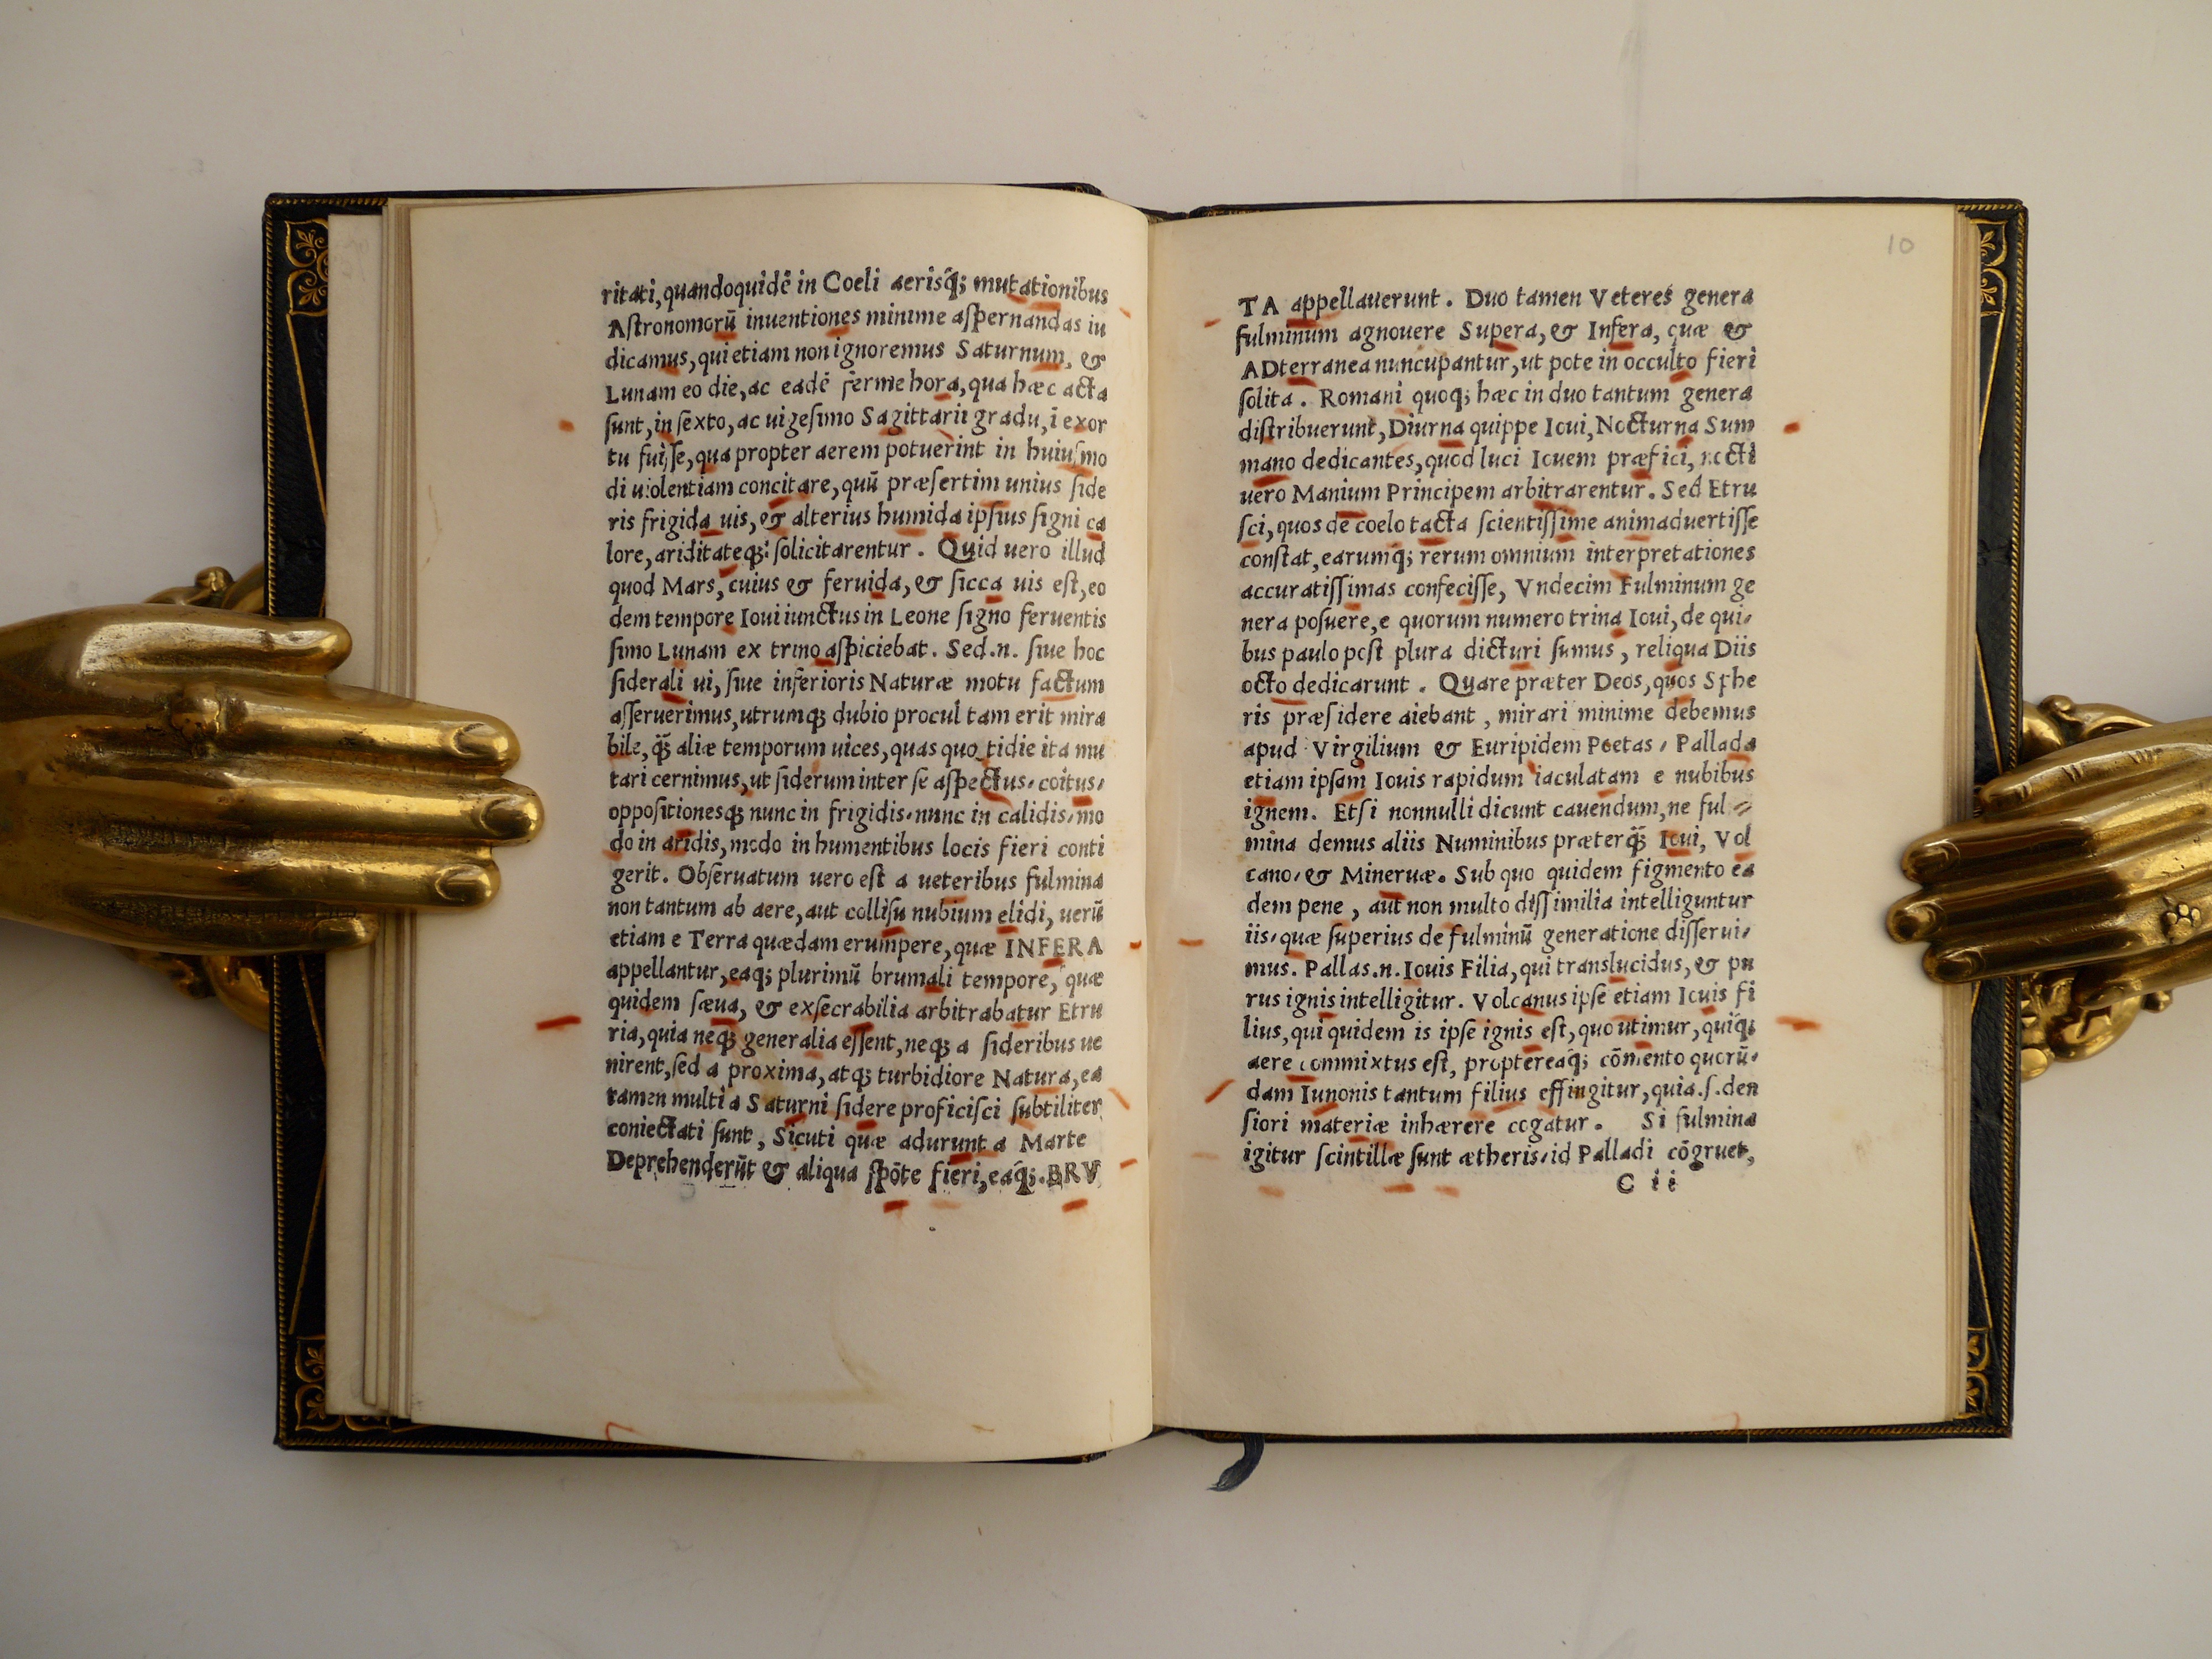 ritati,quandoquidē in Coeli aerisq̃; mutationibus
Aſtronomorū inuentiones minime aſpernandas iu
dicamus,qui etiam non ignoremus Saturnum, &
Lunam eo die,ac eadē ferme hora,qua hæc acta
ſunt,in ſexto,ac uigeſimo Sagittarii gradu,ī exor
tu fuiſſe,qua propter aerem potuerint in huiuſmo
di uiolentiam concitare,quū præſertim unius ſide
ris frigida uis,& alterius humida ipſius ſigni ca
lore,ariditateq; ſolicitarentur. Quid uero illud
quod Mars,cuius & feruida,& ſicca uis eſt,eo
dem tempore Ioui iunctus in Leone ſigno feruentis
ſimo Lunam ex trino aſpiciebat. Sed.n. ſiue hoc
ſiderali ui,ſiue inferioris Naturæ motu factum
aſſeruerimus,utrumq; dubio procul tam erit mira
bile,q̃; aliæ temporum uices,quas quo tidie ita mu
tari cernimus,ut ſiderum inter ſe aſpectus, coitus,
oppoſitionesq; nunc in frigidis,nunc in calidis,mo
do in aridis,modo in humentibus locis fieri conti
gerit. Obſeruatum uero eſt a ueteribus fulmina
non tantum ab aere,aut colliſu nubium elidi, uerū
etiam e Terra quædam erumpere,quæ INFERA
appellantur,eaq; plurimū brumali tempore, quæ
quidem ſæua, & exſecrabilia arbitrabatur Etru
ria,quia neq; generalia eſſent,neq; a ſideribus ue
nirent,ſed a proxima,atq; turbidiore Natura,ea
tamen multi a Saturni ſidere proficiſci ſubtiliter
coniectati ſunt, Sicuti quæ adurunt a Marte
Deprehenderūt & aliqua ſpōte fieri,eaq̃;.BRV
10
TA appellauerunt. Duo tamen Veteres genera
fulminum agnouere Supera,& Infera, quæ &
ADterranea nuncupantur,ut pote in occulto fieri
ſolita. Romani quoq; hæc in duo tantum genera
diſtribuerunt,Diurna quippe Ioui,Nocturna Sum
mano dedicantes,quod luci Iouem præfici, nocti
uero Manium Principem arbitrarentur. Sed Etru
ſci,quos de coelo tacta ſcientiſſime animaduertiſſe
conſtat,earumq̃; rerum omnium interpretationes
accuratiſſimas confeciſſe, Vndecim Fulminum ge
nera poſuere,e quorum numero trina Ioui,de qui-
bus paulo poſt plura dicturi ſumus, reliqua Diis
octo dedicarunt. Quare præter Deos,quos Sphe
ris præſidere aiebant, mirari minime debemus
apud Virgilium & Euripidem Poetas, Pallada
etiam ipſam Iouis rapidum iaculatam e nubibus
ignem. Etſi nonnulli dicunt cauendum,ne ful-
mina demus aliis Numinibus præterq̃; Ioui, Vol
cano,& Mineruæ. Sub quo quidem figmento ea
dem pene, aut non multo diſſimilia intelliguntur
iis,quæ ſuperius de fulminū generatione diſſerui-
mus. Pallas.n.Iouis Filia,qui translucidus,& pu
rus ignis intelligitur. Volcanus ipſe etiam Iouis fi
lius,qui quidem is ipſe ignis eſt,quo utimur,quiq̃;
aere commixtus eſt, proptereaq̃; cōmento quorū-
dam Iunonis tantum filius effingitur,quia.ſ.den
ſiori materiæ inhærere cogatur. Si fulmina
igitur ſcintillæ ſunt ætheris,id Palladi cōgruet,
C ii